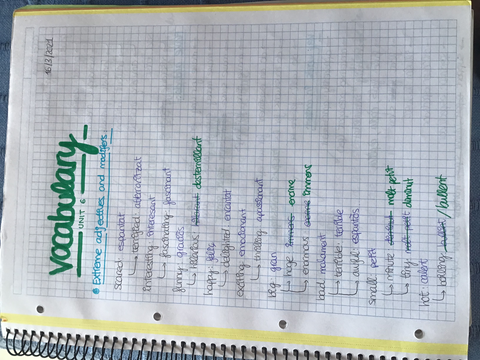 16/3/2021
Vocabulary
UNIT 6
Extreme adjectives and modifiers.
scared: espantat
↳ terrified: aterroritzat
interesting: interessant
↳ fascinating: fascinant
funny: graciós
↳ hilarious: desternillant
happy: feliç
↳ delighted: encantat
exciting: emocionant
↳ thrilling: apassionant
big: gran
↳ huge: enorme
↳ enormous: immens
bad: malament
↳ terrible: terrible
↳ awful: espantós
small: petit
↳ minute: molt petit
↳ tiny: diminut
hot: calent
↳ boiling: / bullent